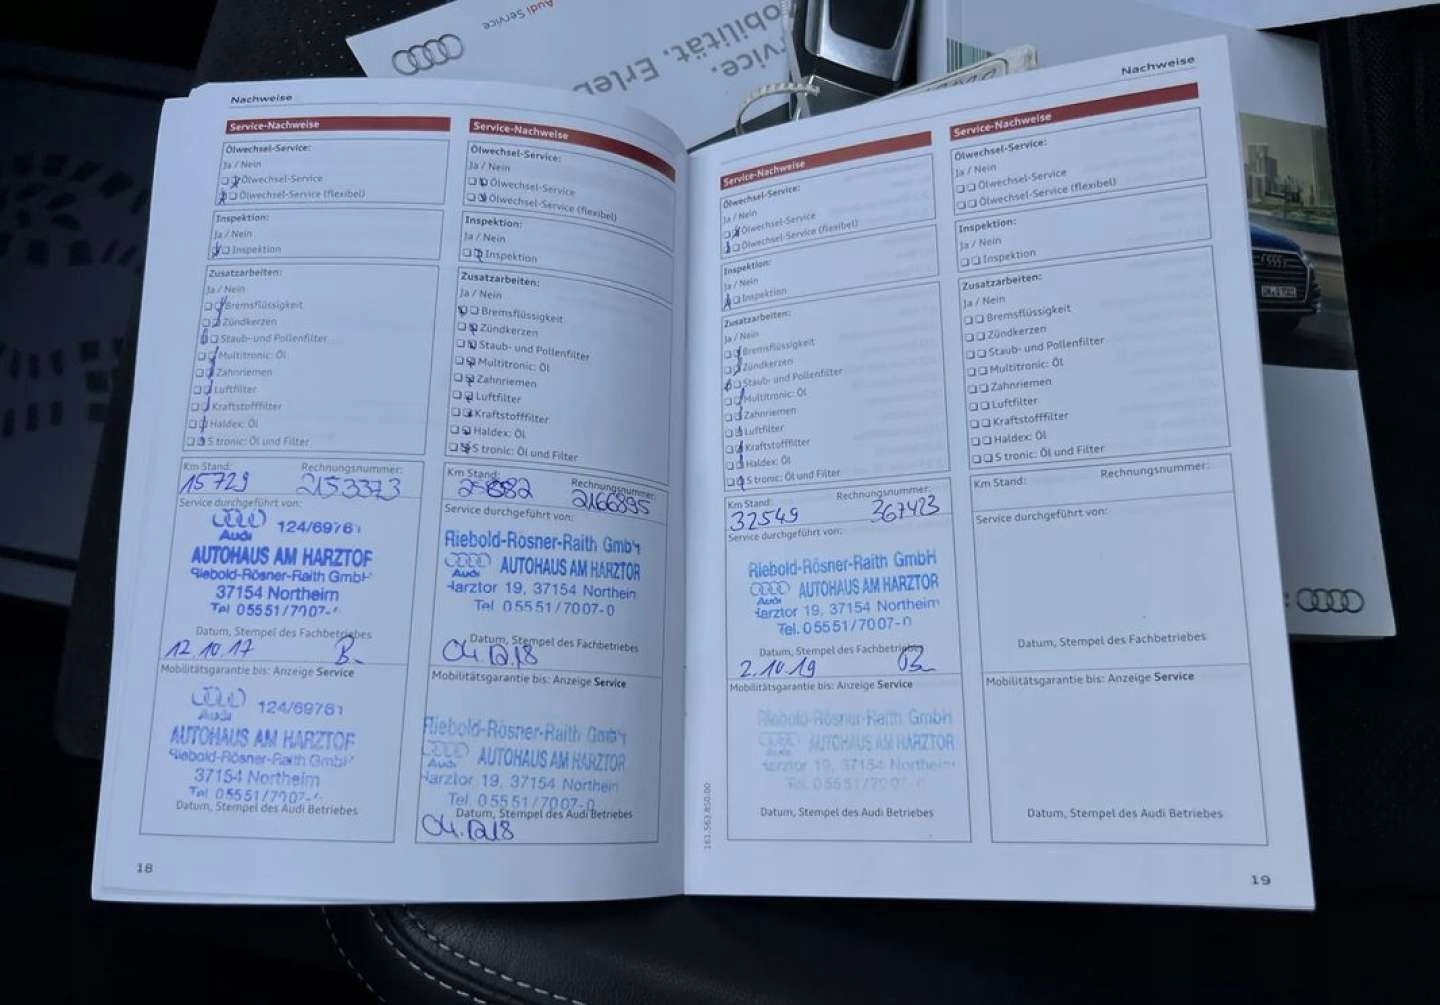 Audi Service
Service.
Mobilität. Erleb
Nachweise
Service-Nachweise
Ölwechsel-Service:
Ja / Nein
Ölwechsel-Service
Ölwechsel-Service (flexibel)
Inspektion:
Ja / Nein
Inspektion
Zusatzarbeiten:
Ja / Nein
Bremsflüssigkeit
Zündkerzen
Staub- und Pollenfilter
Multitronic: Öl
Zahnriemen
Luftfilter
Kraftstofffilter
Haldex: Öl
S tronic: Öl und Filter
Km Stand: Rechnungsnummer:
15729 2153373
Service durchgeführt von:
124/69761
Audi
AUTOHAUS AM HARZTOF
Riebold-Rösner-Raith GmbH
37154 Northeim
Tel 05551/7007-
Datum, Stempel des Fachbetriebes
12.10.17 B
Mobilitätsgarantie bis: Anzeige Service
124/69761
Audi
AUTOHAUS AM HARZTOF
Riebold-Rösner-Raith GmbH
37154 Northeim
Tel 05551/7007-
Datum, Stempel des Audi Betriebes
18
Service-Nachweise
Ölwechsel-Service:
Ja / Nein
Ölwechsel-Service
Ölwechsel-Service (flexibel)
Inspektion:
Ja / Nein
Inspektion
Zusatzarbeiten:
Ja / Nein
Bremsflüssigkeit
Zündkerzen
Staub- und Pollenfilter
Multitronic: Öl
Zahnriemen
Luftfilter
Kraftstofffilter
Haldex: Öl
S tronic: Öl und Filter
Km Stand: Rechnungsnummer:
2166895
Service durchgeführt von:
Riebold-Rösner-Raith GmbH
Audi AUTOHAUS AM HARZTOR
Harztor 19, 37154 Northeim
Tel 05551/7007-0
Datum, Stempel des Fachbetriebes
04.12.18
Mobilitätsgarantie bis: Anzeige Service
Riebold-Rösner-Raith GmbH
Audi AUTOHAUS AM HARZTOR
Harztor 19, 37154 Northeim
Tel. 05551/7007-0
Datum, Stempel des Audi Betriebes
04.12.18
Nachweise
Service-Nachweise
Ölwechsel-Service:
Ja / Nein
Ölwechsel-Service
Ölwechsel-Service (flexibel)
Inspektion:
Ja / Nein
Inspektion
Zusatzarbeiten:
Ja / Nein
Bremsflüssigkeit
Zündkerzen
Staub- und Pollenfilter
Multitronic: Öl
Zahnriemen
Luftfilter
Kraftstofffilter
Haldex: Öl
S tronic: Öl und Filter
Km Stand: Rechnungsnummer:
32549 367423
Service durchgeführt von:
Riebold-Rösner-Raith GmbH
Audi AUTOHAUS AM HARZTOR
Harztor 19, 37154 Northeim
Tel. 05551/7007-0
Datum, Stempel des Fachbetriebes
2.10.19
Mobilitätsgarantie bis: Anzeige Service
Riebold-Rösner-Raith GmbH
Audi AUTOHAUS AM HARZTOR
Harztor 19, 37154 Northeim
Tel. 05551/7007-0
Datum, Stempel des Audi Betriebes
161.563.850.00
Service-Nachweise
Ölwechsel-Service:
Ja / Nein
Ölwechsel-Service
Ölwechsel-Service (flexibel)
Inspektion:
Ja / Nein
Inspektion
Zusatzarbeiten:
Ja / Nein
Bremsflüssigkeit
Zündkerzen
Staub- und Pollenfilter
Multitronic: Öl
Zahnriemen
Luftfilter
Kraftstofffilter
Haldex: Öl
S tronic: Öl und Filter
Km Stand: Rechnungsnummer:
Service durchgeführt von:
Datum, Stempel des Fachbetriebes
Mobilitätsgarantie bis: Anzeige Service
Datum, Stempel des Audi Betriebes
19